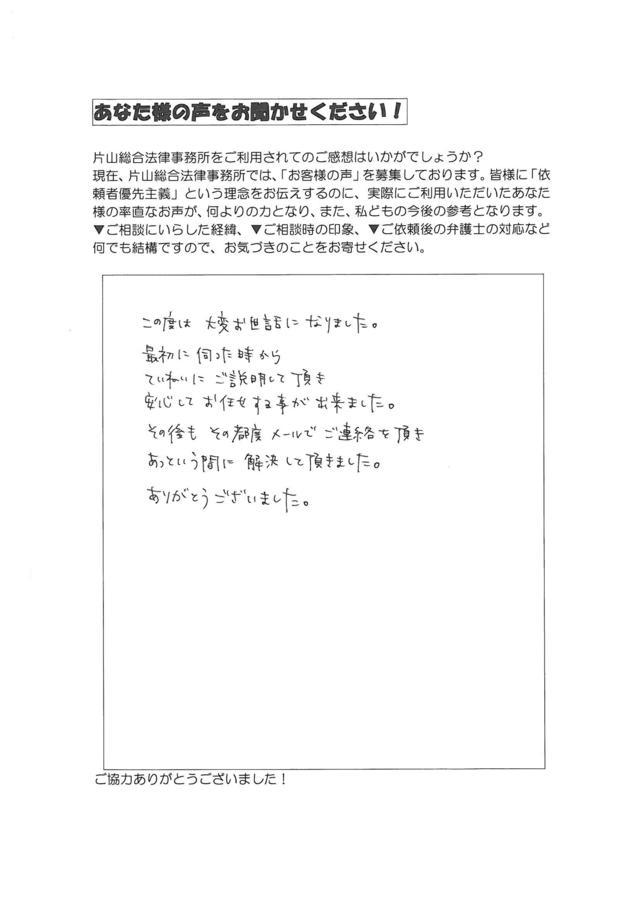 あなた様の声をお聞かせください！
片山総合法律事務所をご利用されてのご感想はいかがでしょうか？
現在、片山総合法律事務所では、「お客様の声」を募集しております。皆様に「依
頼者優先主義」という理念をお伝えするのに、実際にご利用いただいたあなた
様の率直なお声が、何よりの力となり、また、私どもの今後の参考となります。
▼ご相談にいらした経緯、▼ご相談時の印象、▼ご依頼後の弁護士の対応など
何でも結構ですので、お気づきのことをお寄せください。
この度は 大変お世話になりました。
最初に伺った時から
ていねいに ご説明して頂き
安心して お任せする事が出来ました。
その後も その都度 メールで ご連絡を頂き
あっという間に 解決して頂きました。
ありがとうございました。
ご協力ありがとうございました！